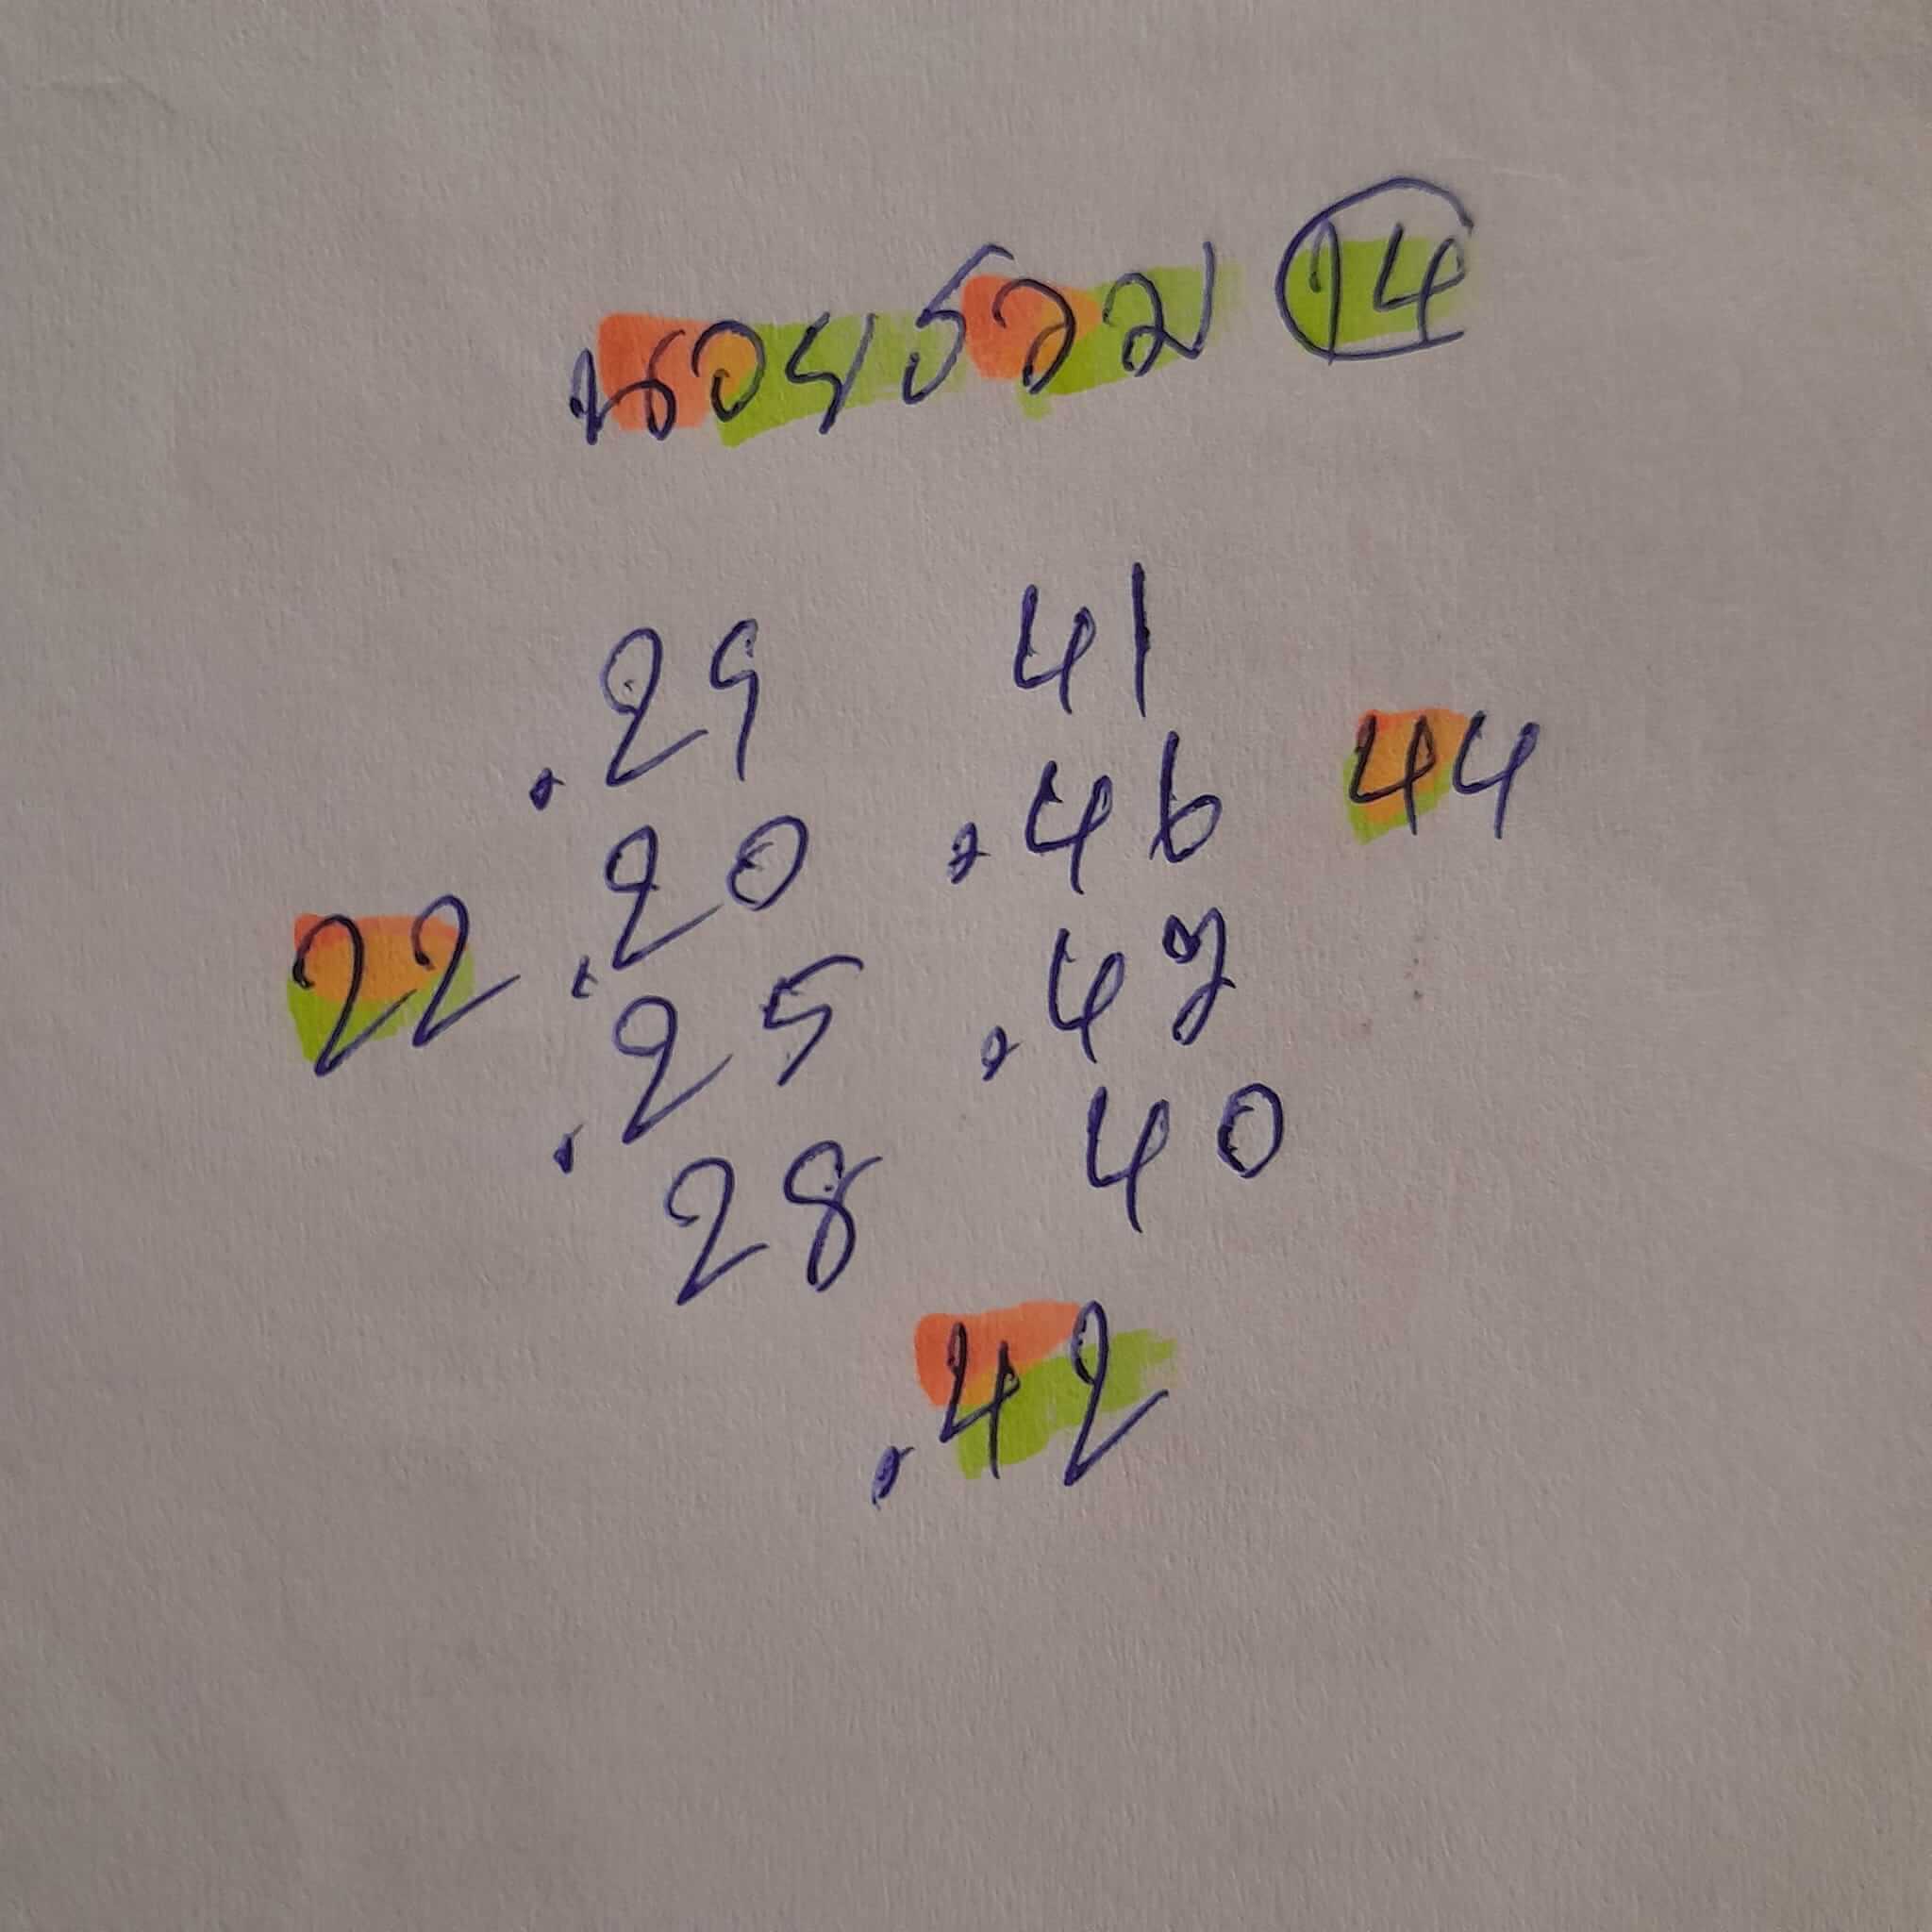 นอยรวม 14
.29 41
.20 .46 44
22 .25 .47
28 40
.42